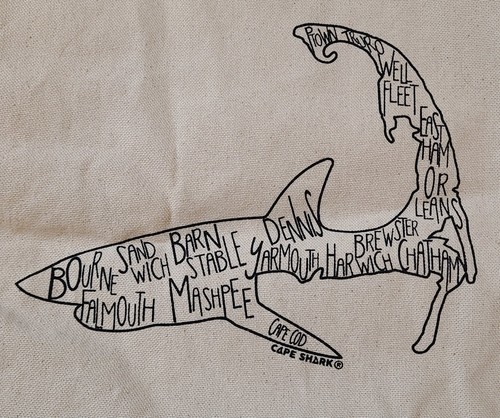 PTOWN
TRURO
WELL
FLEET
EAST
HAM
OR
LEANS
BREWSTER
HAR
WICH
CHATHAM
DENNIS
YARMOUTH
BARN
STABLE
SAND
WICH
BOURNE
FALMOUTH
MASHPEE
CAPE COD
CAPE SHARK®